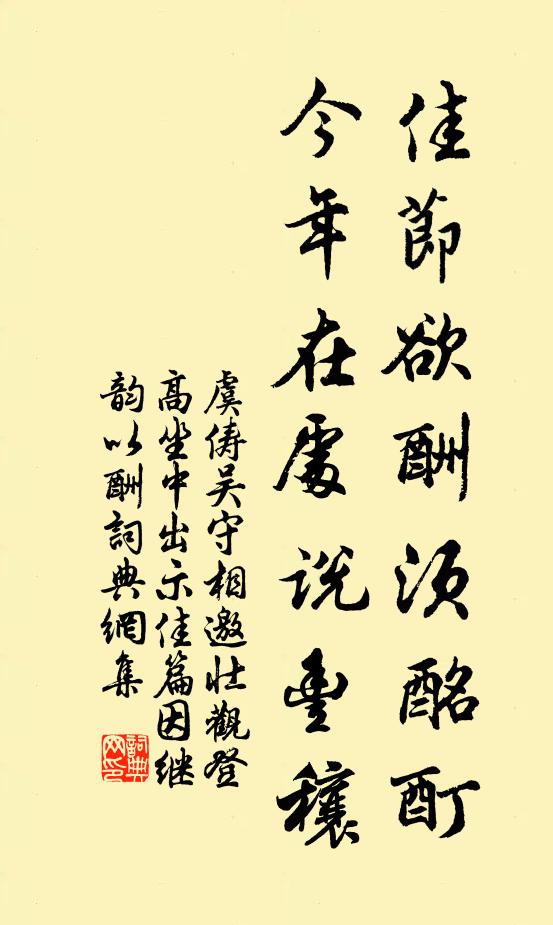 佳節欲酬須酩酊
今年在處說豊穰
虞儔吳守相邀壯觀登
高坐中出示佳篇因继
韵以酬詞典網集
詞典
网印